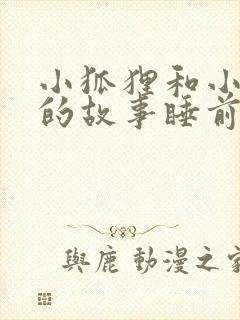 小狐狸和小
的故事睡前
與鹿動漫之家